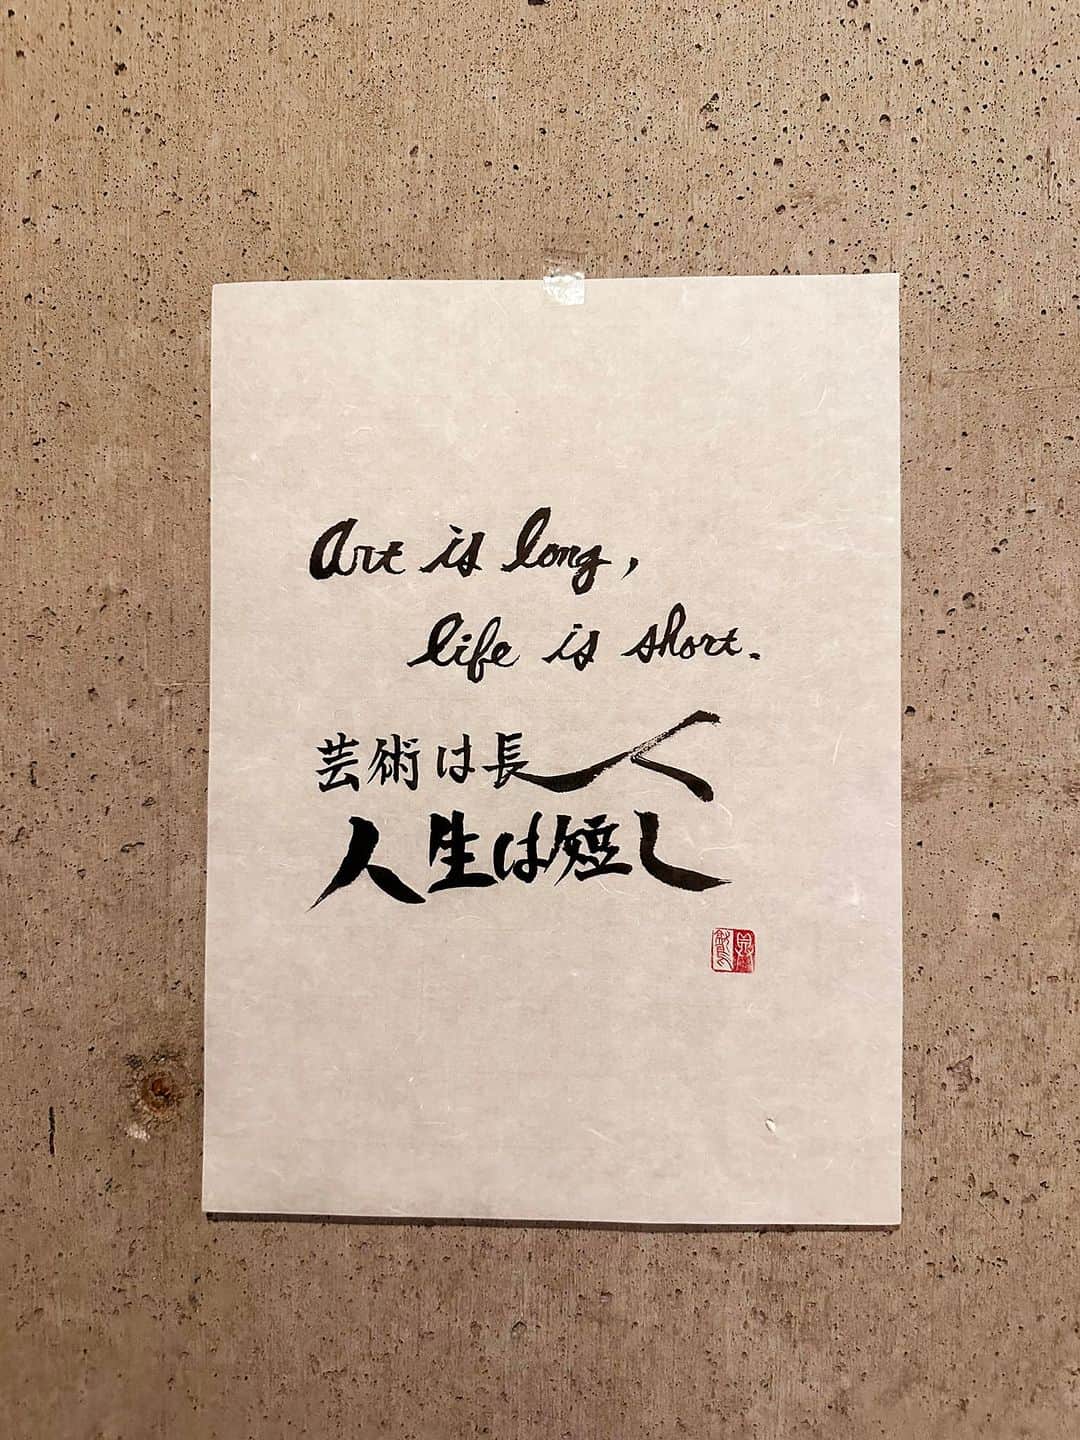 Art is long,
life is short.
芸術は長く
人生は短し